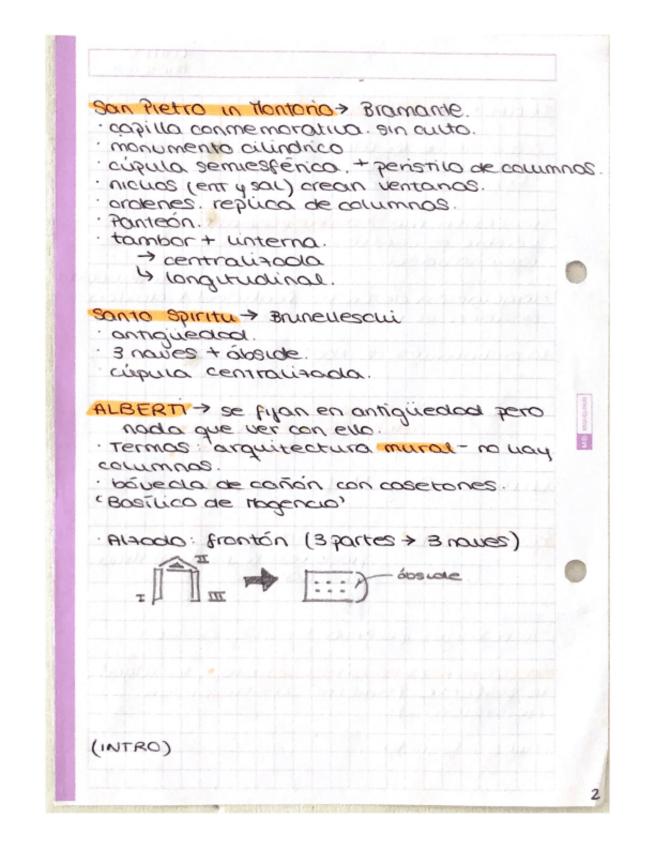 San Pietro in Montorio → Bramante.
· capilla conmemorativa. sin culto.
· monumento cilíndrico
· cúpula semiesférica. + peristilo de columnas.
· nichos (ent y sal) crean ventanas.
· ordenes. replica de columnas.
· Panteón.
· tambor + linterna.
→ centralizada
↳ longitudinal.
Santo Spiritu → Brunelleschi
· antigüedad.
· 3 naves + ábside.
· cúpula centralizada.
ALBERTI → se fijan en antigüedad pero
nada que ver con ello.
· Termas: arquitectura mural - no hay
columnas.
· bóveda de cañón con casetones.
'Basílica de Magencio'
· Alzado: frontón (3 partes → 3 naves)
II
ábside
I III
(INTRO)
2